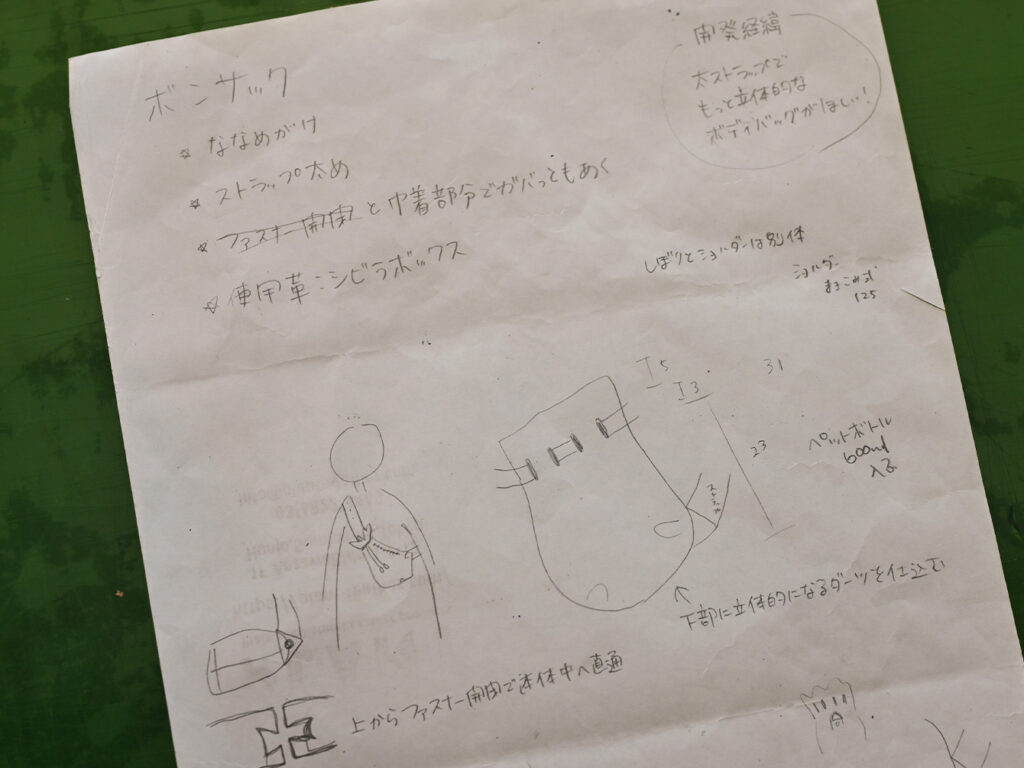 ボンサック
☆ ななめがけ
☆ ストラップ太め
☆ ファスナー開閉と巾着部分でガバっともあく
☆ 使用革：シビラボックス
開発経緯
太ストラップで
もっと立体的な
ボディバッグがほしい！
しぼりとショルダーは別体
ショルダー
125
5
3
31
23
ペットボトル
600ml
入る
下部に立体的になるダーツを仕込む
上からファスナー開閉で本体中へ直通